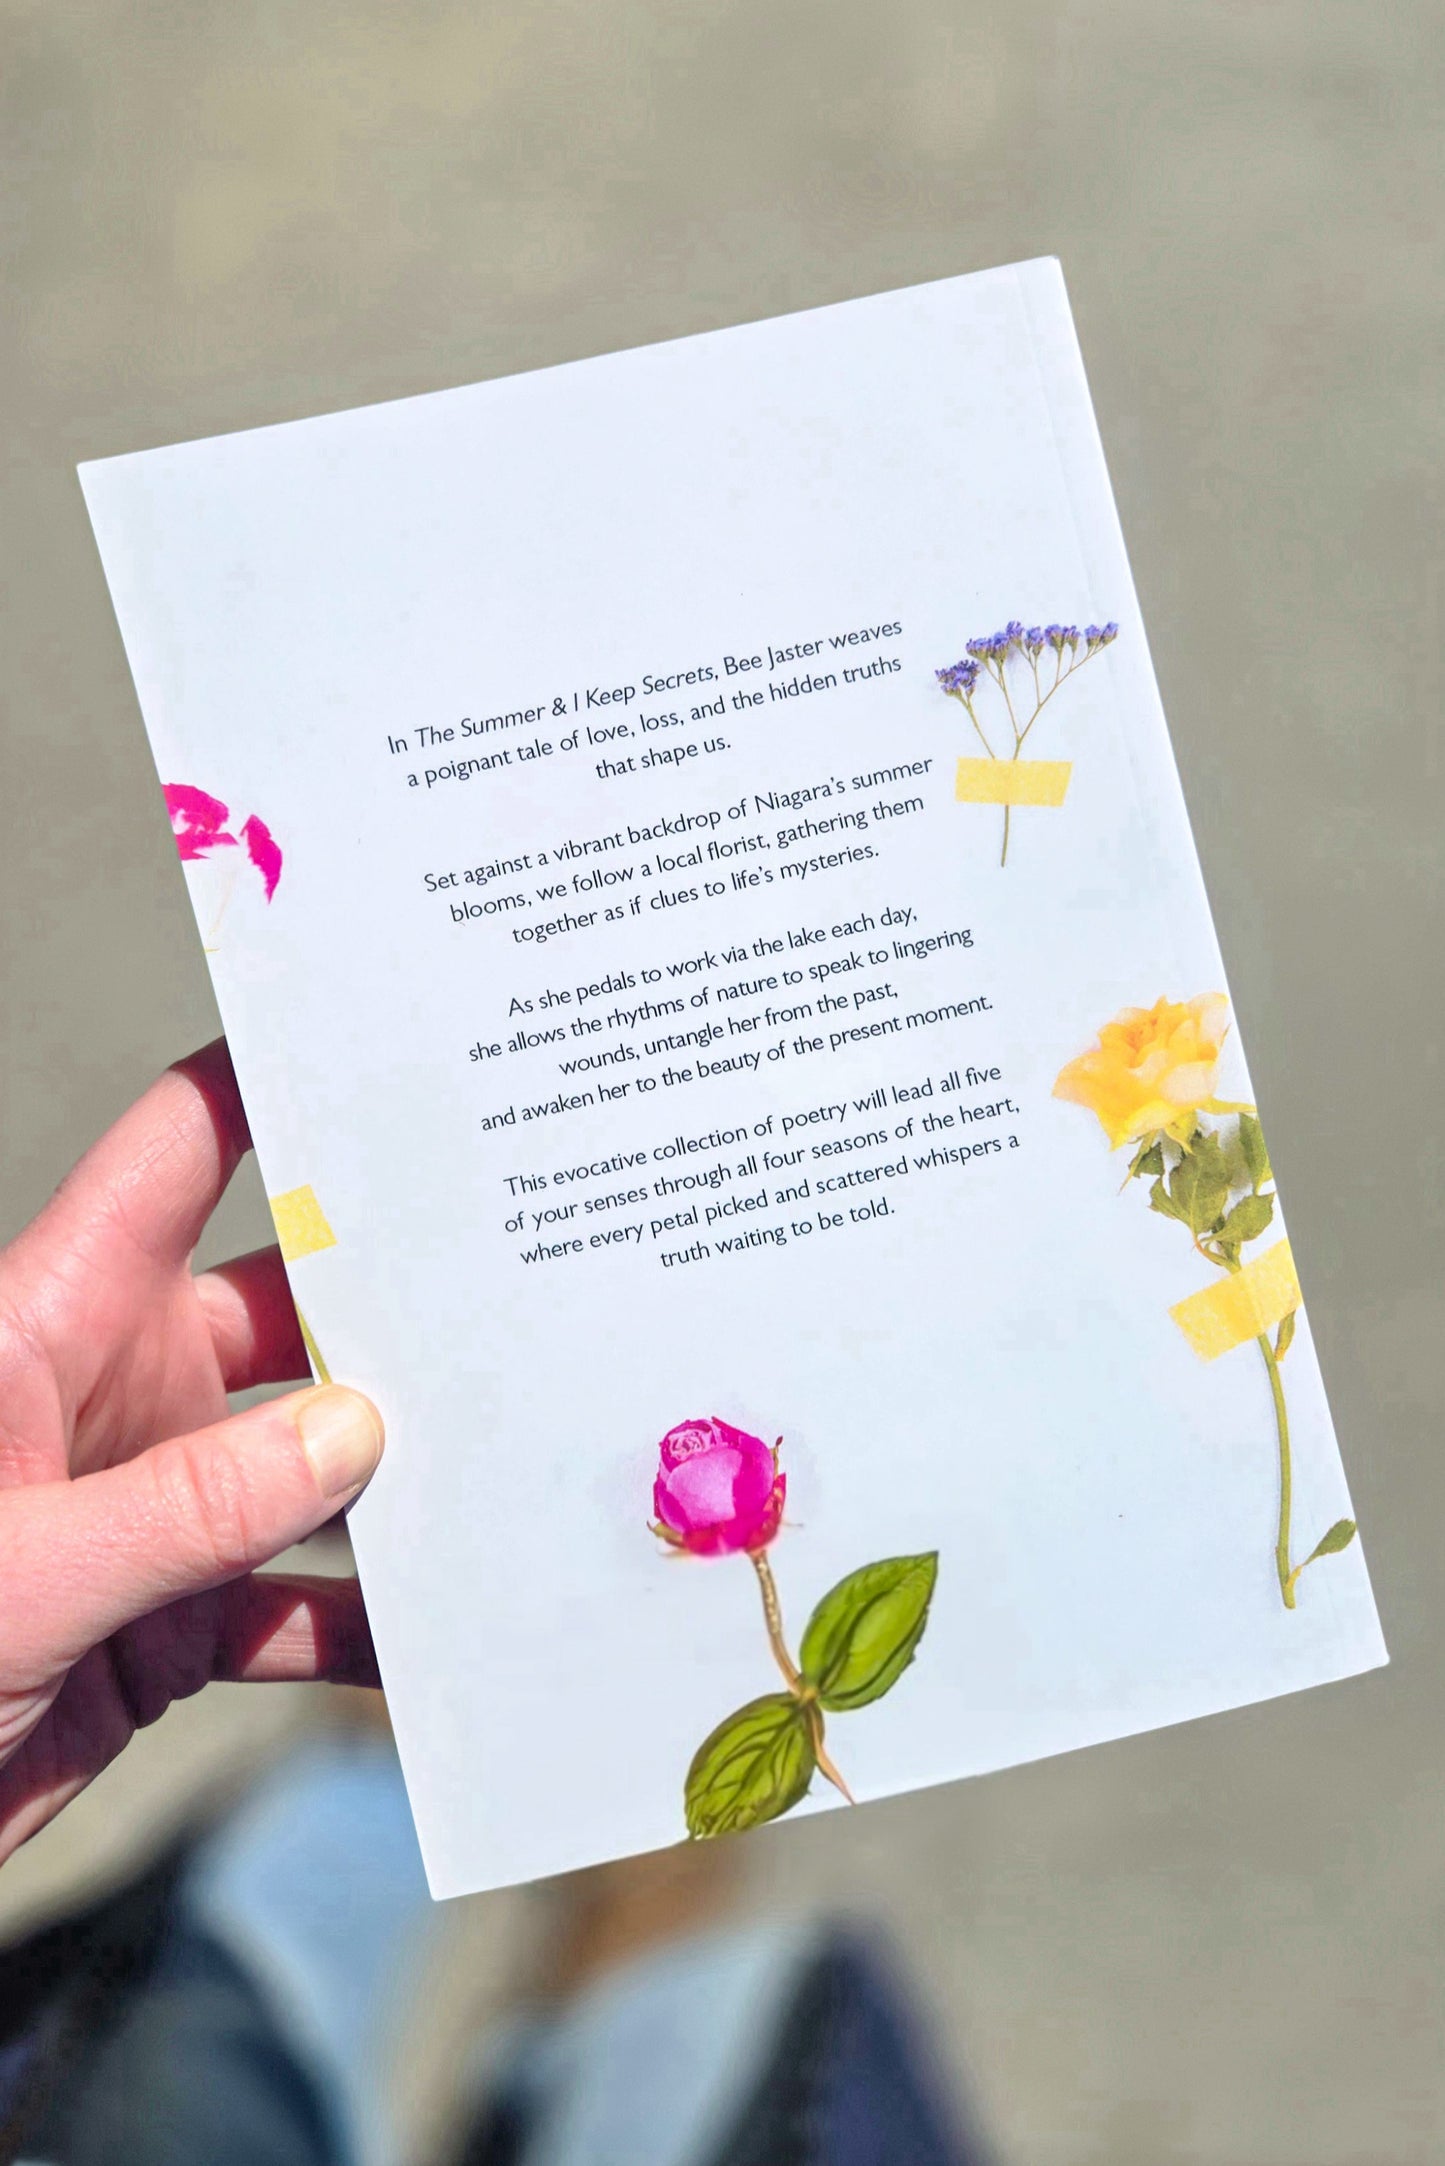 In The Summer & I Keep Secrets, Bee Jaster weaves
a poignant tale of love, loss, and the hidden truths
that shape us.
Set against a vibrant backdrop of Niagara's summer
blooms, we follow a local florist, gathering them
together as if clues to life's mysteries.
As she pedals to work via the lake each day,
she allows the rhythms of nature to speak to lingering
wounds, untangle her from the past,
and awaken her to the beauty of the present moment.
This evocative collection of poetry will lead all five
of your senses through all four seasons of the heart,
where every petal picked and scattered whispers a
truth waiting to be told.